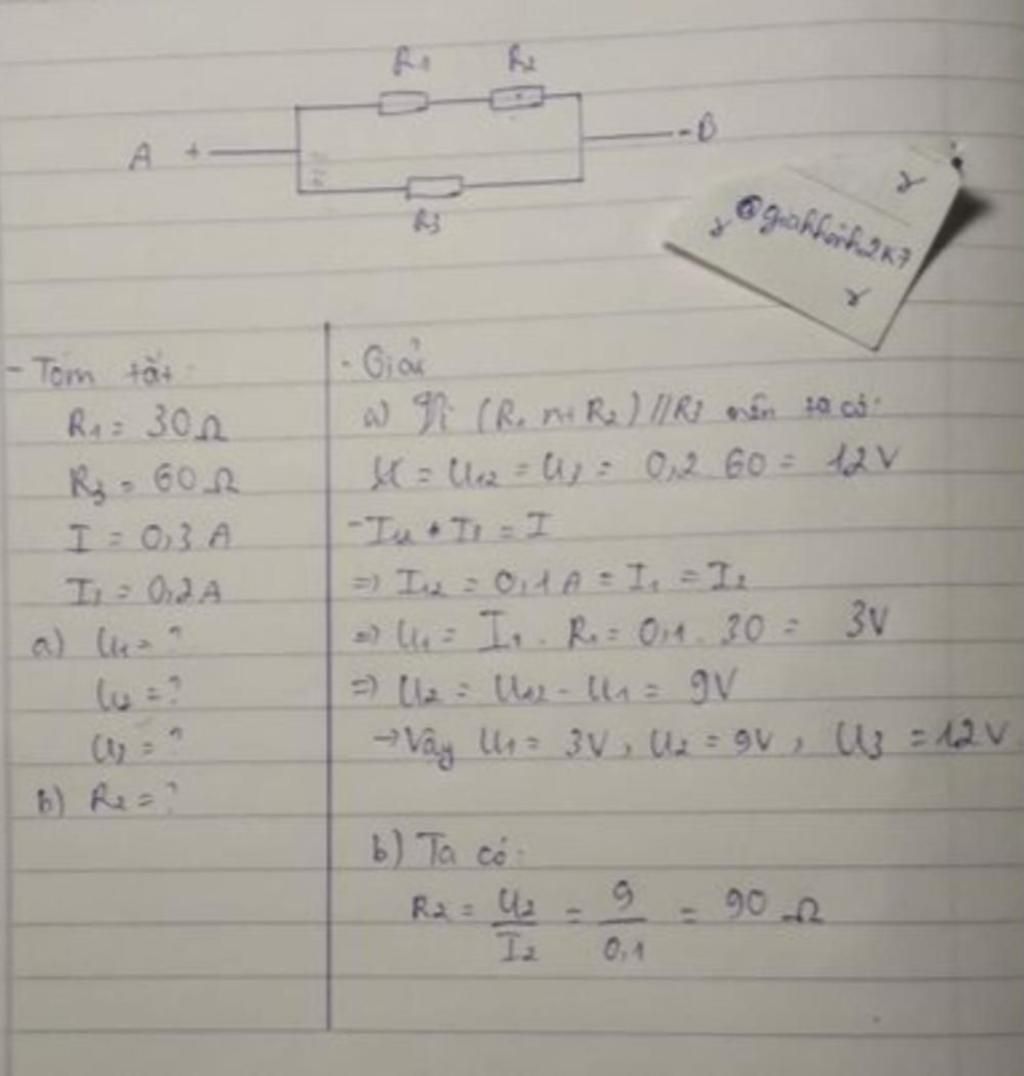 R1 R2
A + - B
R3
@giakhanh2k7
- Tóm tắt:
R1 = 30Ω
R3 = 60Ω
I = 0,3 A
I3 = 0,2A
a) U1 = ?
U2 = ?
U3 = ?
b) R2 = ?
- Giải
a) Vì (R1 nt R2) // R3 nên ta có:
U = U12 = U3 = 0,2 . 60 = 12V
- I12 + I3 = I
=> I12 = 0,1A = I1 = I2
=> U1 = I1 . R1 = 0,1 . 30 = 3V
=> U2 = U12 - U1 = 9V
→ Vậy U1 = 3V, U2 = 9V, U3 = 12V
b) Ta có:
R2 = U2/I2 = 9/0,1 = 90 Ω